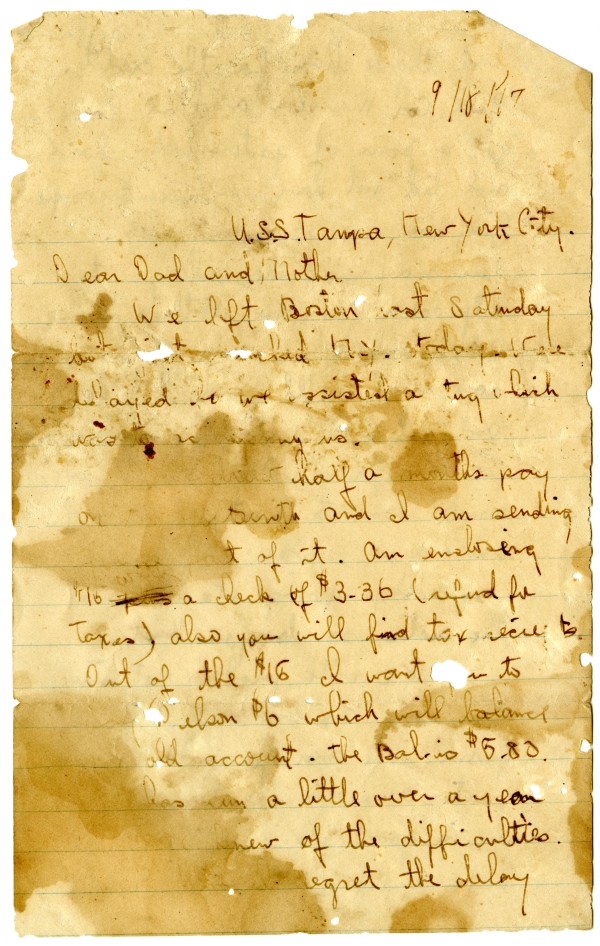 9/18/17
U.S.S. Tampa, New York City.
Dear Dad and Mother
We left Boston last Saturday
but N.Y. today. Were
delayed as we assisted a tug which
was
half a months pay
on and I am sending
of it. Am enclosing
$16 a check of $3.36 (refund for
Taxes) also you will find tax
Out of the $16 I want to
$6 which will balance
old account. The Bal. is $5.80.
has run a little over a year
of the difficulties.
regret the delay